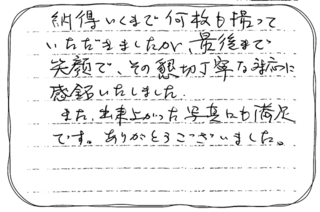 納得いくまで何枚も撮って
いただきましたが、最後まで
笑顔で、その懇切丁寧な対応に
感銘いたしました.
また、出来上がった写真にも満足
です。ありがとうございました。